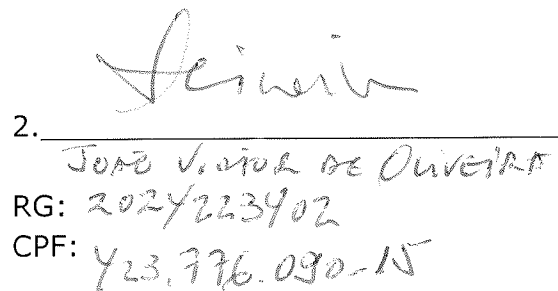 2.
JOÃO VICTOR DE OLIVEIRA
RG: 2024223402
CPF: 423.776.090-15